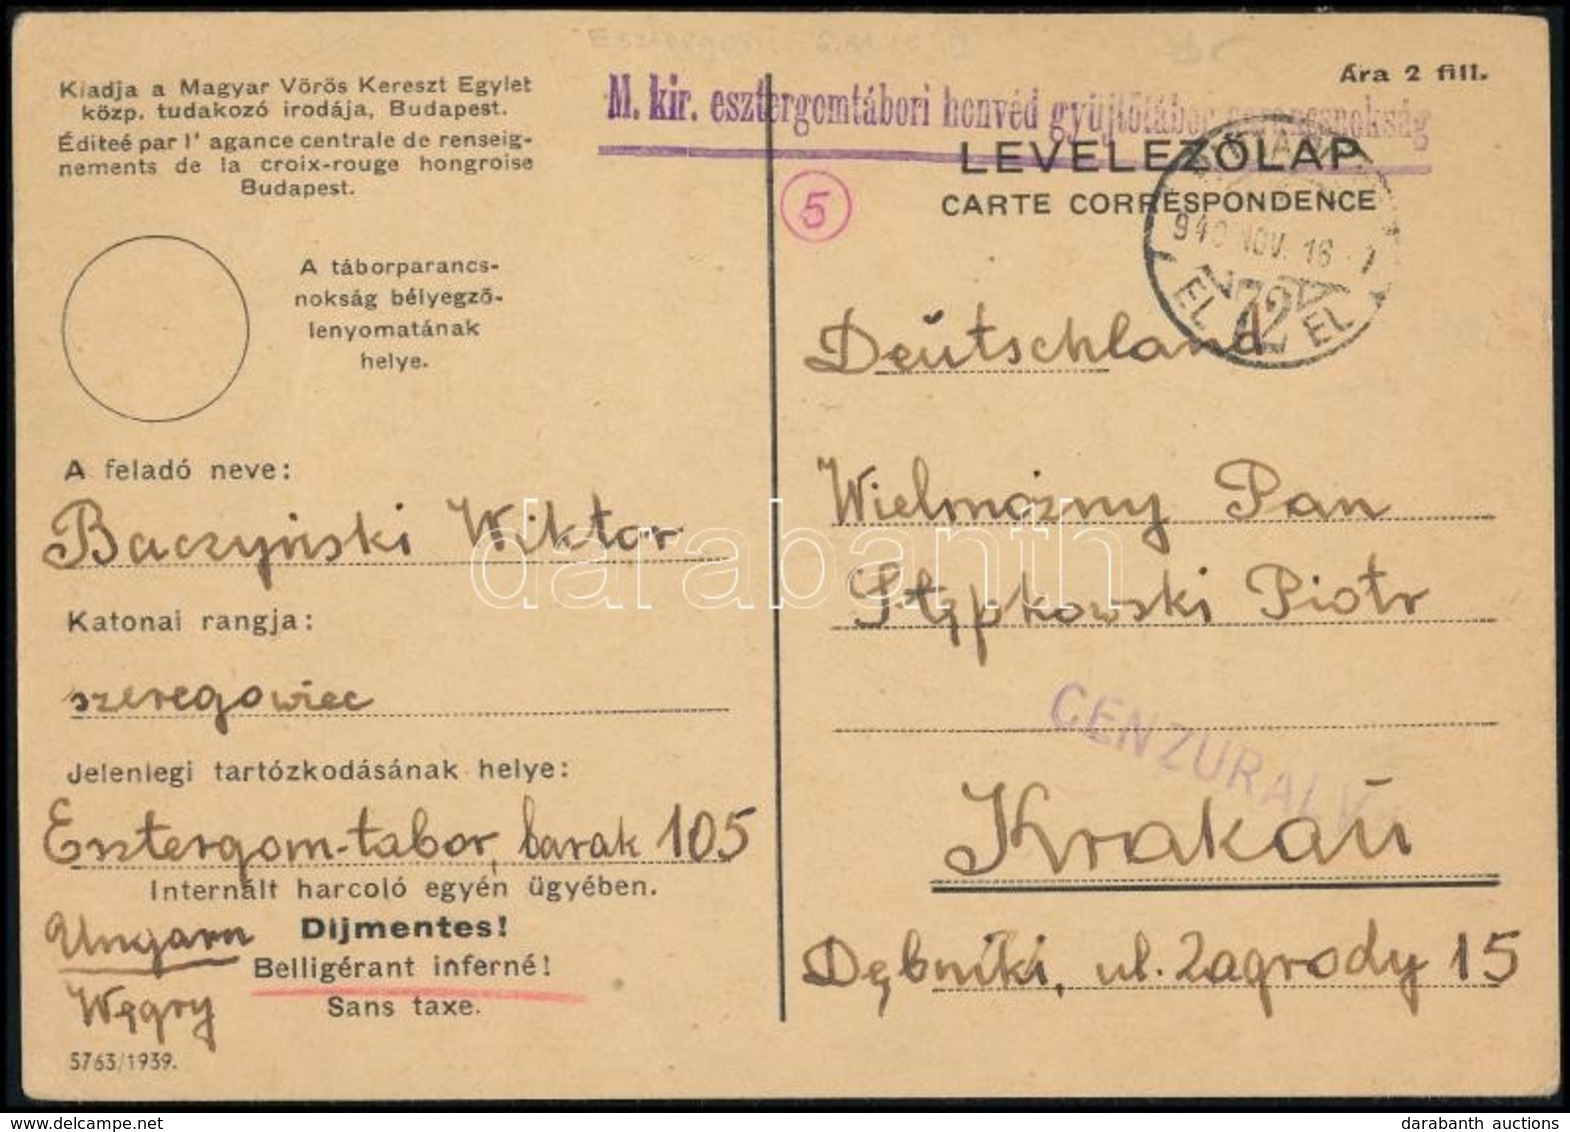 Kiadja a Magyar Vörös Kereszt Egylet
közp. tudakozó irodája, Budapest.
Éditeé par l' agance centrale de renseig-
nements de la croix-rouge hongroise
Budapest.
A táborparancs-
nokság bélyegző-
lenyomatának
helye.
A feladó neve:
Baczyński Wiktor
Katonai rangja:
szeregowiec
Jelenlegi tartózkodásának helye:
Esztergom-tabor, barak 105
Internált harcoló egyén ügyében.
Ungarn
Díjmentes!
Belligérant inferné!
Węgry
Sans taxe.
5763/1939.
Ára 2 fill.
M. kir. esztergomtábori honvéd gyüjtőtábor parancsnokság
LEVELEZŐLAP
CARTE CORRESPONDENCE
5
940 NOV. 16
72
EL EL
Deutschland
Wielmożny Pan
Stępkowski Piotr
CENZURALVA
Krakau
Dębniki, ul. Zagrody 15
darabanth
darabanth auctions